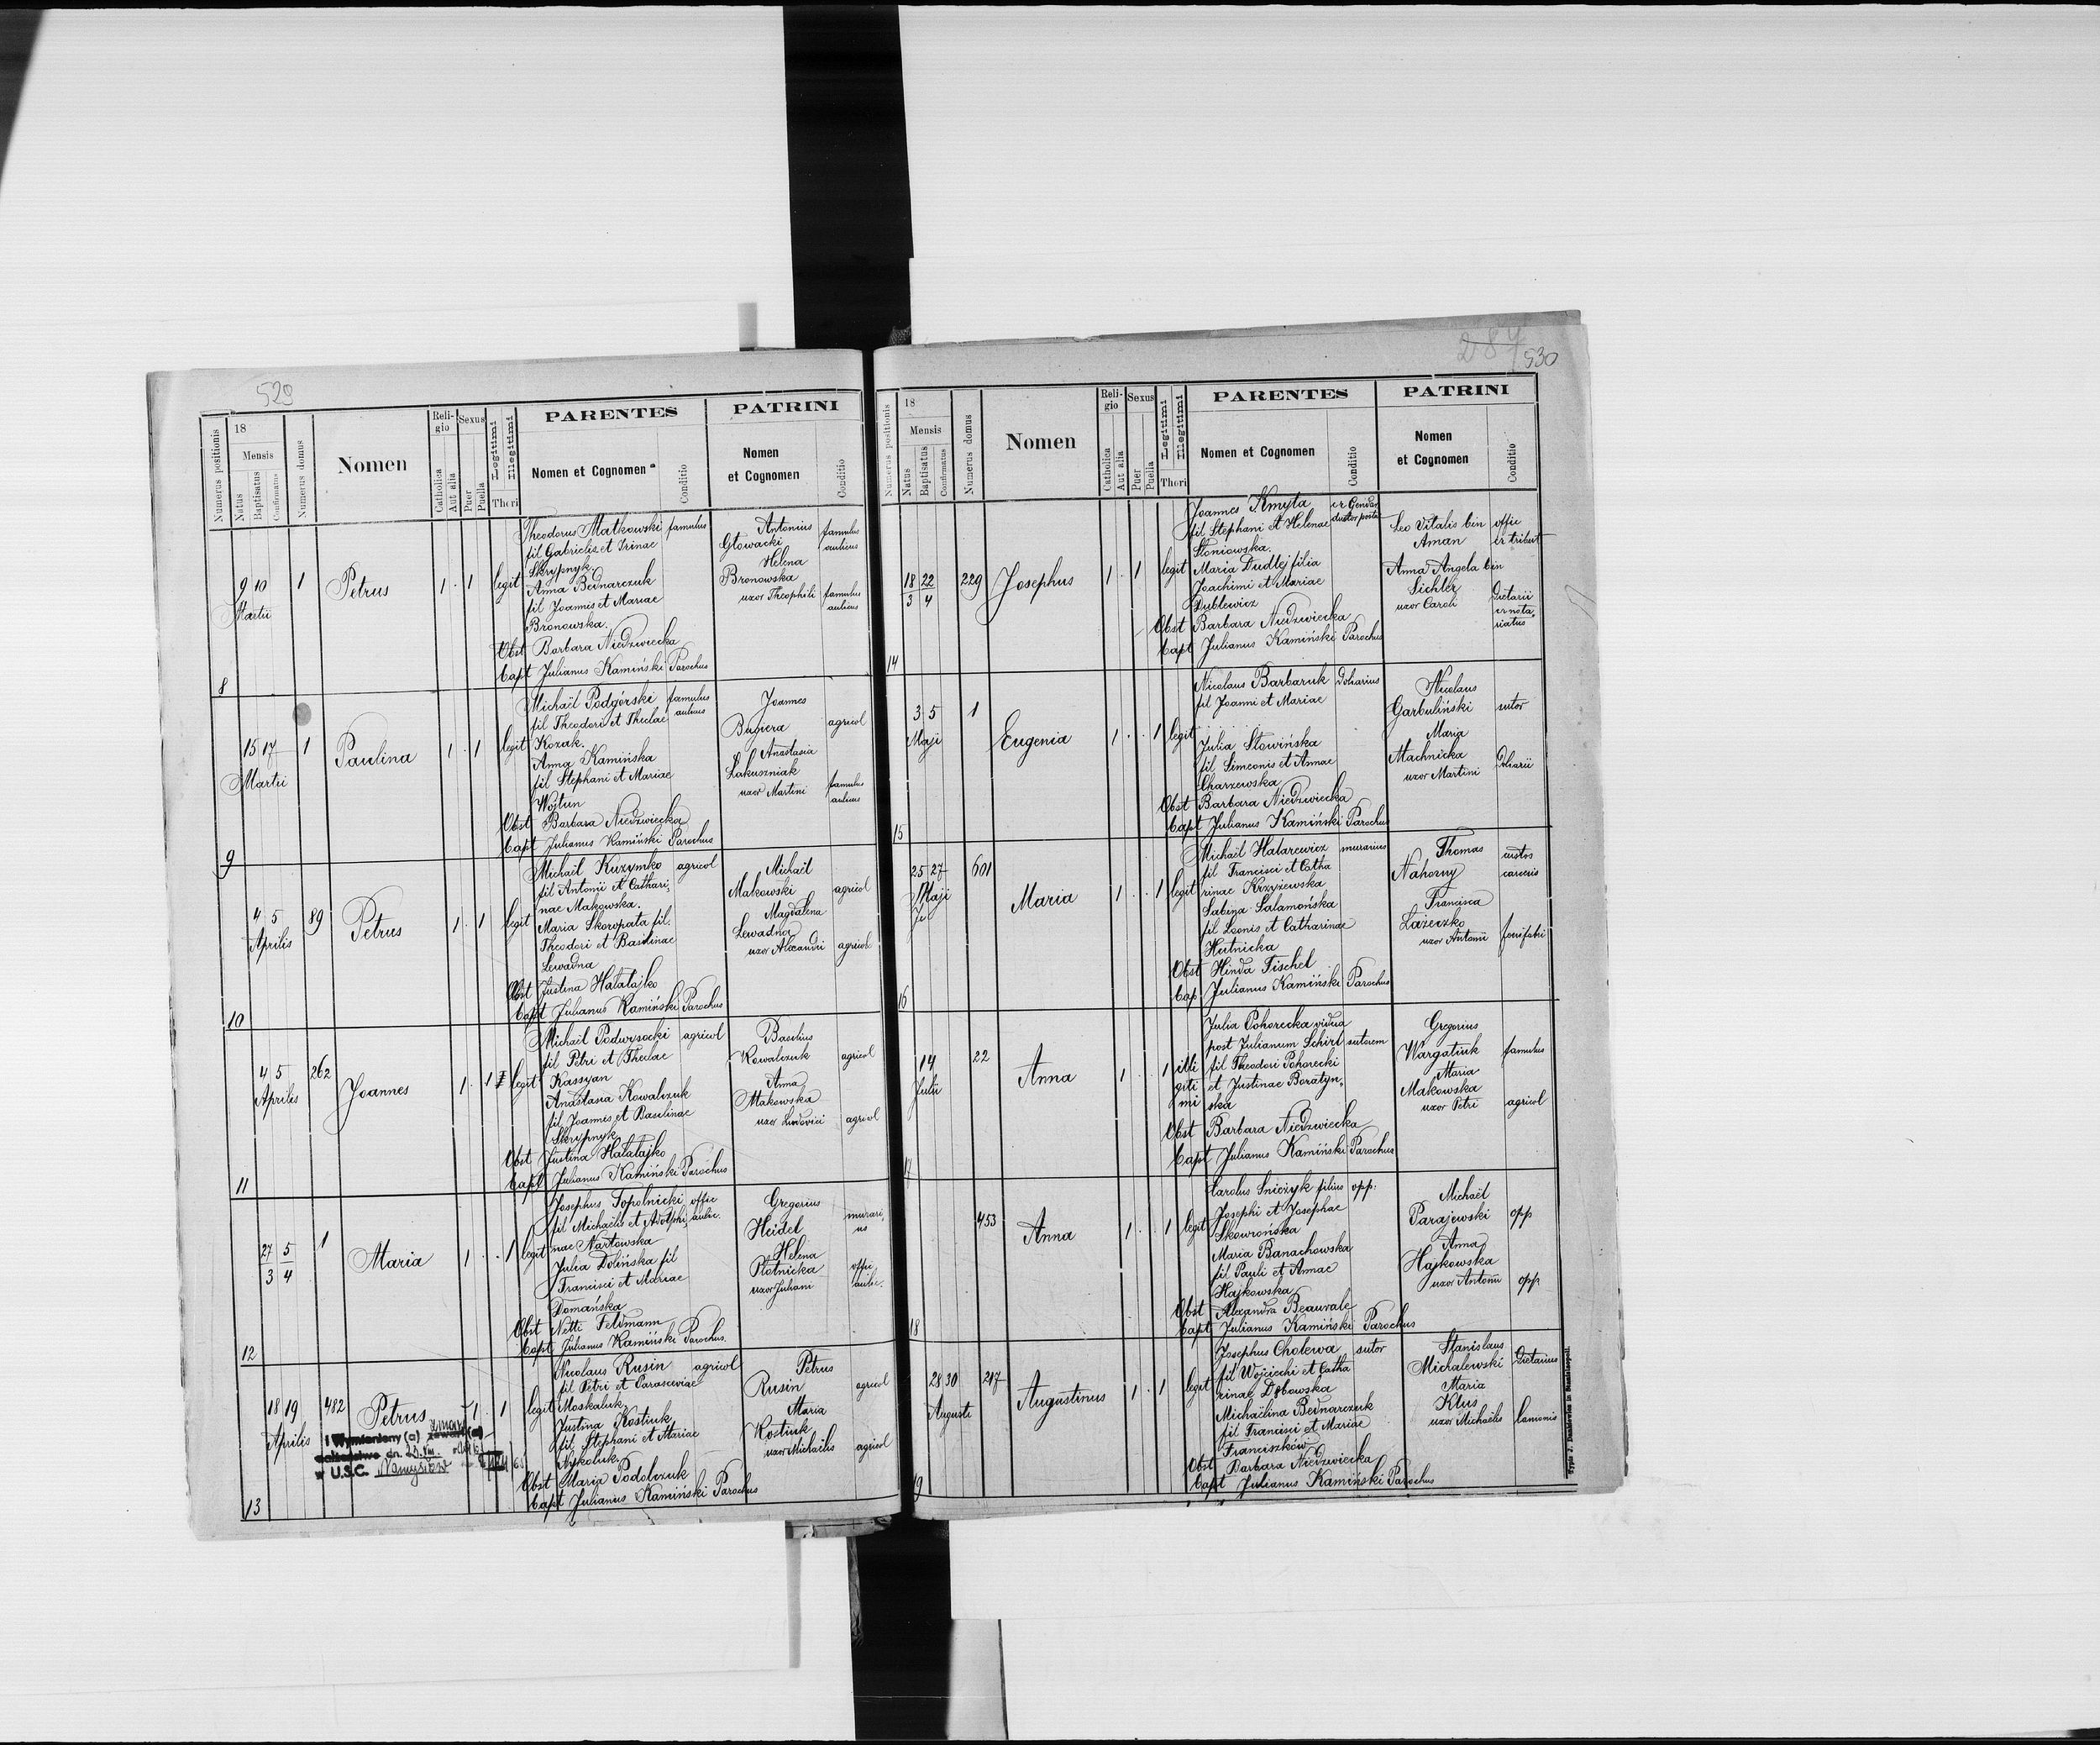 529
Numerus positionis
18
Mensis
Natus
Baptisatus
Confirmatus
Numerus domus
Nomen
Religio
Catholica
Aut alia
Sexus
Puer
Puella
Legitimi
Illegitimi
Thori
PARENTES
Nomen et Cognomen
Conditio
PATRINI
Nomen
et Cognomen
Conditio
8
9 10
Martii
1
Petrus
1 . 1
legit
Theodorus Matkowski famulus
fil Gabrielis et Irinae
Skrypnyk.
Anna Bednarczuk
fil Joannis et Mariae
Bronowska.
Obst Barbara Niedzwiecka
Bapt Julianus Kamiński Parochus
Antonius
Głowacki
famulus
aulicus
Helena
Bronowska
uxor Theophili
famulus
aulicus
9
15 17
Martii
1
Paulina
1 . 1
legit
Michaël Podgórski famulus
fil Theodori et Theclae aulicus
Kozak.
Anna Kamińska
fil Stephani et Mariae
Wojtun
Obst Barbara Niedzwiecka
Bapt Julianus Kamiński Parochus
Joannes
Bugiera agricol
Anastasia
Łakuszniak
uxor Martini
famulus
aulicus
10
4 5
Aprilis
89
Petrus
1 . 1
legit
Michaël Kuzymko agricol
fil Antonii et Cathari,
nae Makowska.
Maria Skoropata fil.
Theodori et Basilinae
Lewadna
Obst Justina Hałatajko
Bapt Julianus Kamiński Parochus
Michaël
Makowski agricol
Magdalena
Lewadna
uxor Alexandri agricol
11
4 5
Aprilis
262
Joannes
1 . 1
legit
Michaël Podwysocki agricol
fil Petri et Theclae
Kassyan
Anastasia Kowalczuk
fil Joannis et Basilinae
Skrypnyk
Obst Justina Hałatajko
Bapt Julianus Kamiński Parochus
Basilius
Kowalczuk agricol
Anna
Makowska
uxor Ludovici agricol
12
27 5
3 4
1
Maria
1 . . 1
legit
Josephus Topolnicki offic
fil Michaëlis et Adolphi, aulic.
nae Nartowska
Julia Dolińska fil
Francisci et Mariae
Domańska
Obst Netti Feldmann
Bapt Julianus Kamiński Parochus.
Gregorius
Heidel
murari,
us
Helena
Płotnicka
uxor Juliani
offic
aulic.
13
18 19
Aprilis
482
Petrus
1 . 1
legit
Nicolaus Rusin agricol
fil Petri et Parasceviae
Moskaluk
Justina Kostiuk
fil Stephani et Mariae
Nykoluk
Obst Maria Podolczuk
Bapt Julianus Kamiński Parochus
Petrus
Rusin agricol
Maria
Kostiuk
uxor Michaëlis agricol
Wymieniony (a) zawarł (a)
zmarł
małżeństwo dn.
w U.S.C. Namysłów
287
530
Numerus positionis
18
Mensis
Natus
Baptisatus
Confirmatus
Numerus domus
Nomen
Religio
Catholica
Aut alia
Sexus
Puer
Puella
Legitimi
Illegitimi
Thori
PARENTES
Nomen et Cognomen
Conditio
PATRINI
Nomen
et Cognomen
Conditio
14
18 22
3 4
229
Josephus
1 . 1
legit
Joannes Kmyta
fil Stephani et Helenae
Słoniowska.
Maria Dudlej filia
Joachimi et Mariae
Dublewicz
Obst Barbara Niedzwiecka
Bapt Julianus Kamiński Parochus
Leo Vitalis bin
Aman
offic
Anna Angela bin
Lichtler
uxor Caroli
dietarii
15
3 5
Maji
1
Eugenia
1 . . 1
legit
Nicolaus Barbaruk doliarius
fil Joanni et Mariae
Julia Słowińska
fil Simeonis et Annae
Charzewska
Obst Barbara Niedzwiecka
Bapt Julianus Kamiński Parochus
Nicolaus
Garbuliński sutor
Maria
Machnicka
uxor Martini doliarii
16
25 27
Maji
601
Maria
1 . . 1
legit
Michaël Hałarewicz murarius
fil Francisci et Catha
rinae Krzyżewska
Sabina Salamońska
fil Leonis et Catharinae
Hutnicka
Obst Hinda Fischel
Bap Julianus Kamiński Parochus
Thomas
Nahorny
custos
carceris
Francisca
Łażeczko
uxor Antonii
17
14
Julii
22
Anna
1 . . 1
illi
giti
mi
Julia Pohorecka vidua
post Julianum Schirl sutorem
fil Theodori Pohorecki
et Justinae Boratyn,
ska
Obst Barbara Niedzwiecka
Bapt Julianus Kamiński Parochus
Gregorius
Wargatiuk famulus
Maria
Makowska
uxor Petri agricol
18
453
Anna
1 . . 1
legit
Carolus Sniczyk filius opp.
Josephi et Josephae
Skowrońska
Maria Banachowska
fil Pauli et Annae
Hajkowska
Obst Alexandra Beauvale
Bapt Julianus Kamiński Parochus
Michaël
Parajewski opp
Anna
Hajkowska
uxor Antonii opp
19
28 30
Augusti
217
Augustinus
1 . 1
legit
Josephus Cholewa sutor
fil Wojciechi et Catha
rinae Dębowska
Michaëlina Bednarczuk
fil Francisci et Mariae
Franciszków
Obst Barbara Niedzwiecka
Bapt Julianus Kamiński Parochus
Stanislaus
Michalewski dietarius
Maria
Klus
uxor Michaëlis
Typis J. Dankiewicz in Stanislaopoli.